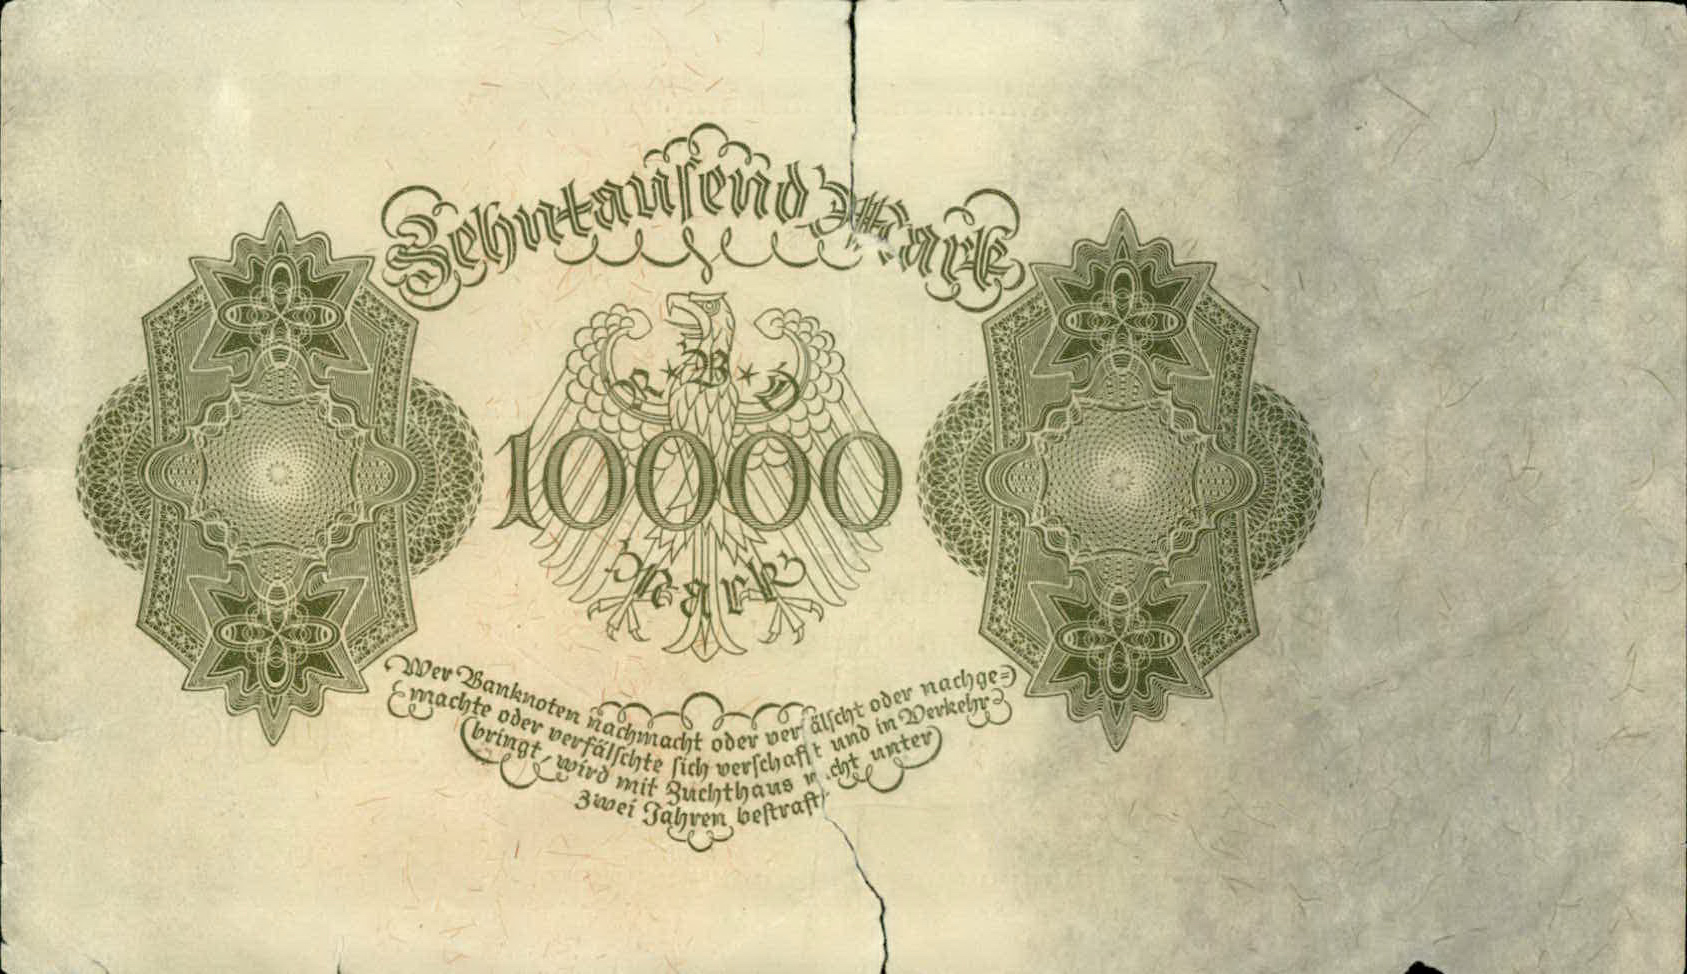 Zehntausend Mark
R * B * D
10000
Mark
Wer Banknoten nachmacht oder verfälscht oder nachge=
machte oder verfälschte sich verschafft und in Verkehr
bringt, wird mit Zuchthaus nicht unter
zwei Jahren bestraft